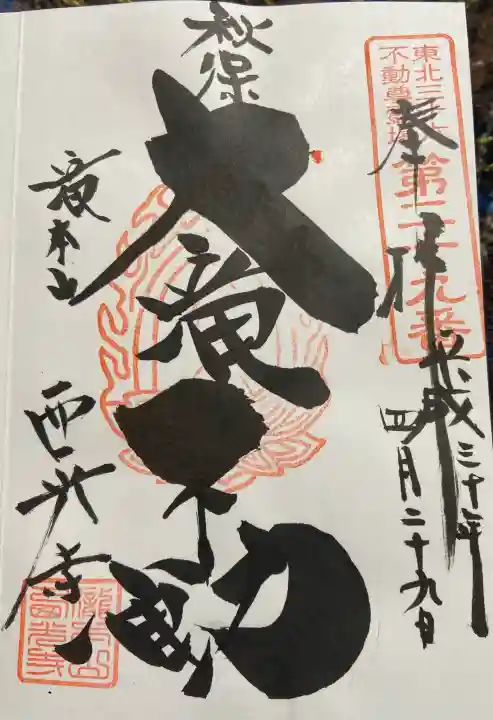 東北三十六
不動尊霊場
第二十九番
奉拝
平成三十年
四月二十九日
秋保
大滝不動
滝本山
西光寺
瀧本山
西光寺